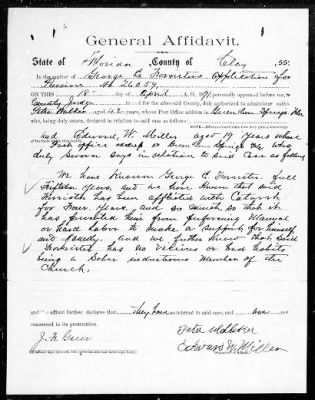 General Affidavit.
State of Florida County of Clay, SS:
In the matter of George L. Application for
Pension No 26059
ON THIS 18 day of April A.D. 1891 personally appeared before me
County Judge in and for the aforesaid County, duly authorized to administer oaths
Peter aged 42 years, whose Post Office address is Green Cove Springs Fla
who, being duly sworn, declared in relation to said case as follows:
and Edward W. Miller aged 19 years whose
Post office address is Green Cove Springs Fla who,
duly sworn says in relation to said Case as follows
We have Known George L. full
Fifteen Years, and we have known that said
has been afflicted with Catarrh
for Four Years, and so much so that it
has prevented him from performing Manual
or Hard labor to make a support for himself
and family. And we further know that said
has no vicious or bad habits
being a Sober industrious Member of the
Church.
and affiant further declares that they have no interest in said case, and
concerned in its prosecution.
Edward W. Miller